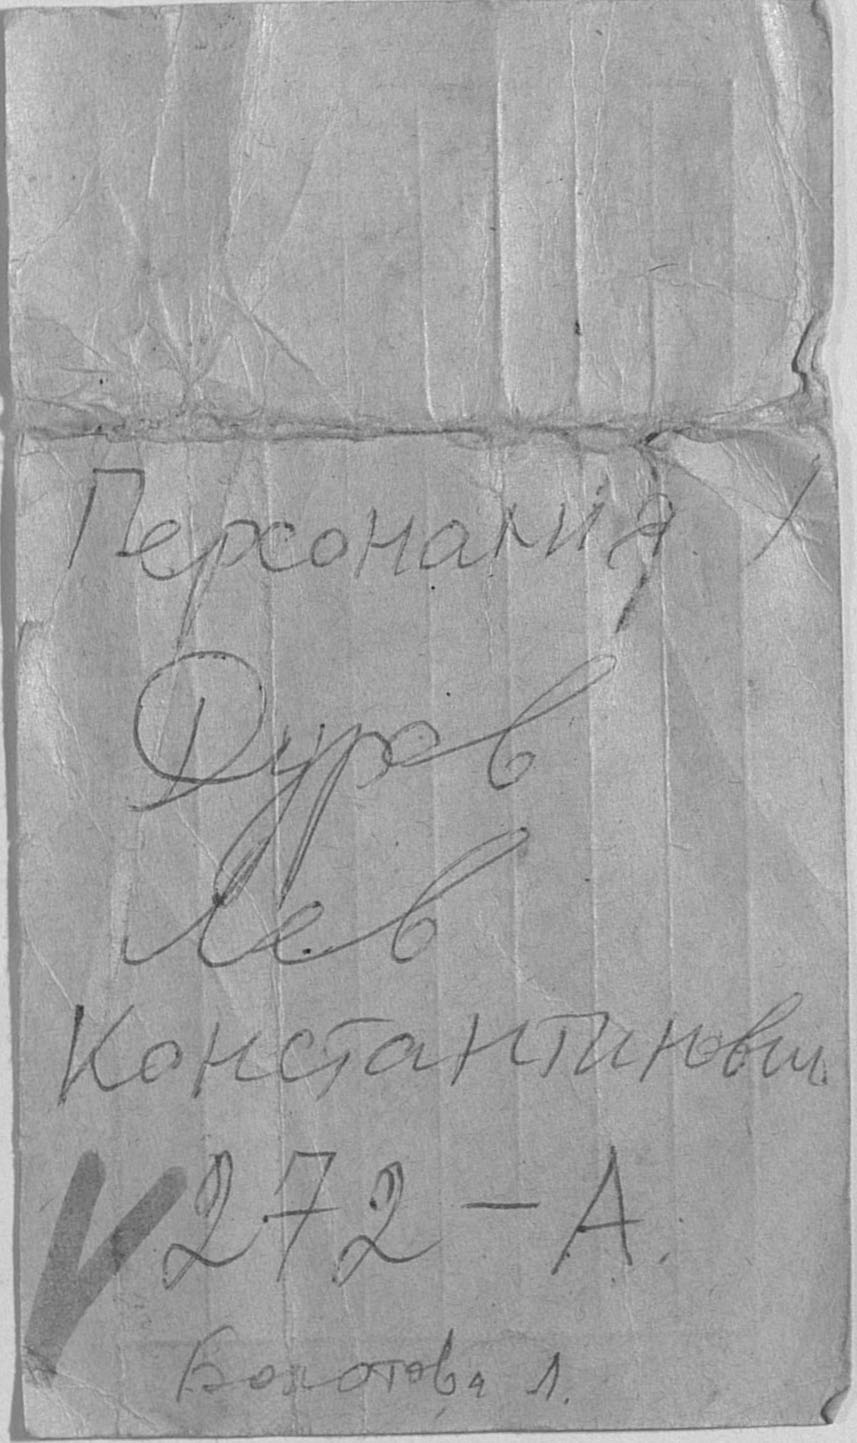 Персоналия
Дуров
Лев
Константинович
272 – А.
Болотова Л.